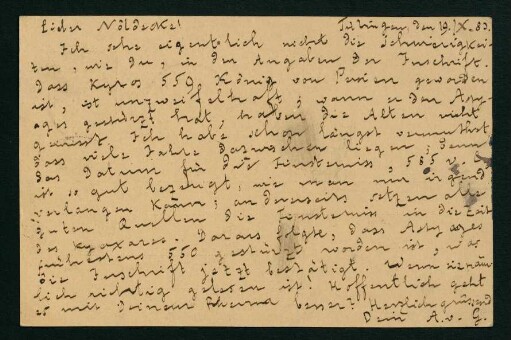 Lieber Nöldeke! Tübingen, den 19. X. 80.
Ich sehe eigentlich nicht die Schwierigkei-
ten, wie Du, in den Angaben der Inschrift.
Dass Kyros 559 König von Persien geworden
ist, ist unzweifelhaft; wann er den Asty-
ages gestürzt hat, haben die Alten nicht
gewusst. Ich habe schon längst vermuthet,
dass viele Jahre dazwischen liegen; denn
das Datum für die Finsterniss, 585 v. C
ist so gut bezeugt, wie man nur irgend
verlangen kann; anderseits setzen alle
guten Quellen die Finsterniss in die Zeit
des Kyaxares. Daraus folgte, dass Astyages
frühestens 550 gestürzt worden ist, was
die Inschrift jetzt bestätigt. Wenn sie näm-
lich richtig gelesen ist! Hoffentlich geht
es mit Deinem Rheuma besser? Herzlich grüssend
Dein A. v. G.